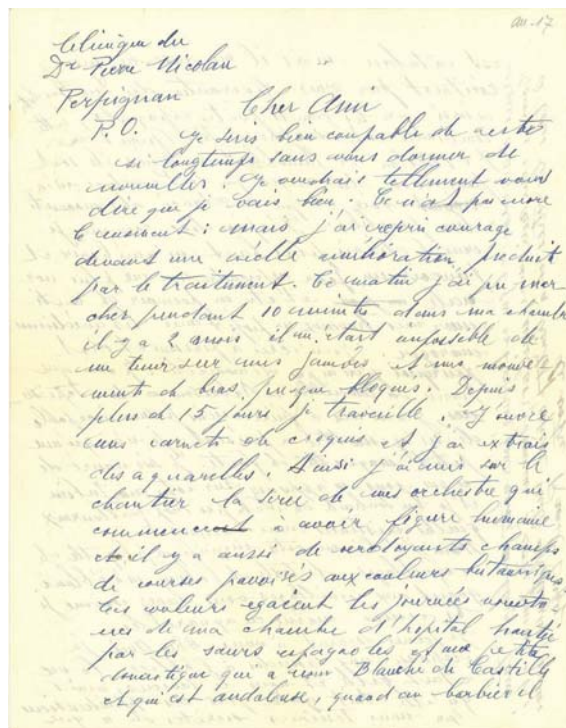 an-17
Clinique du
Dr Pierre Nicolau
Perpignan
Cher Ami
P.O. Je suis bien coupable de rester
si longtemps sans vous donner de
nouvelles. Je voudrais tellement vous
dire que je vais bien. Ce n'est pas encore
le moment: mais j'ai repris courage
devant une réelle amélioration produit
par le traitement. Ce matin j'ai pu mar
cher pendant 10 minutes dans ma chambre
il y a 2 mois il m'était impossible de
me tenir sur mes jambes et mes mouve
ments de bras presque bloqués. Depuis
plus de 15 jours je travaille. J'ouvre
mes carnets de croquis et j'ai extrais
des aquarelles. Ainsi j'ai mis sur le
chantier la série de mes orchestre qui
commence à avoir figure humaine
et il y a aussi de verdoyants champs
de courses pavoisés aux couleurs britanniques
Ces couleurs egaient les journées
de ma chambre d'hopital
par les sœurs espagnoles et une petite
domestique qui a nom Blanche de Castille
et qui est andalouse, quand un barbier